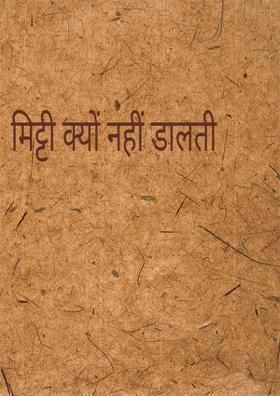 मिट्टी क्यों नहीं डालती